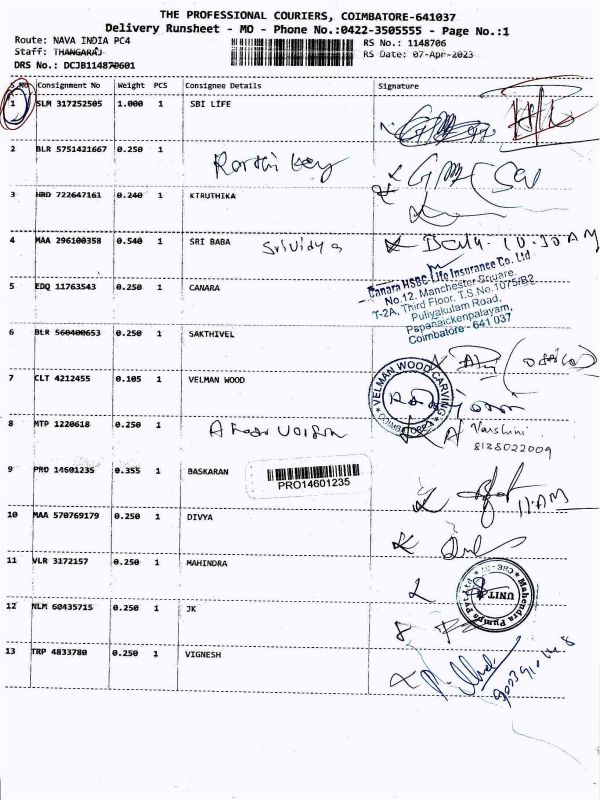 THE PROFESSIONAL COURIERS, COIMBATORE-641037
Delivery Runsheet - MO - Phone No.:0422-3505555 - Page No.:1
Route: NAVA INDIA PC4 RS No.: 1148706
Staff: THANGARAJ RS Date: 07-Apr-2023
DRS No.: DCJB114870601
S.No Consignment No Weight PCS Consignee Details Signature
1 SLM 317252505 1.000 1 SBI LIFE
2 BLR 5751421667 0.250 1
3 HRD 722647161 0.240 1 KIRUTHIKA
4 MAA 296100358 0.540 1 SRI BABA Srividya 10.30 AM
Canara HSBC Life Insurance Co. Ltd
No.12, Manchester Square,
T-2A, Third Floor, T.S No.1075/B2
Puliyakulam Road,
Papanaickenpalayam,
Coimbatore - 641 037
5 EDQ 11763543 0.250 1 CANARA
6 BLR 560400653 0.250 1 SAKTHIVEL
7 CLT 4212455 0.105 1 VELMAN WOOD
VELMAN WOOD CARVING
COIMBATORE
8 MTP 1220618 0.250 1 A Varshini
8128022009
9 PRO 14601235 0.355 1 BASKARAN
PRO14601235
11 AM
10 MAA 570769179 0.250 1 DIVYA
11 VLR 3172157 0.250 1 MAHINDRA
Mahendra Pumps Pvt Ltd
UNIT
12 NLM 60435715 0.250 1 JK
13 TRP 4833780 0.250 1 VIGNESH